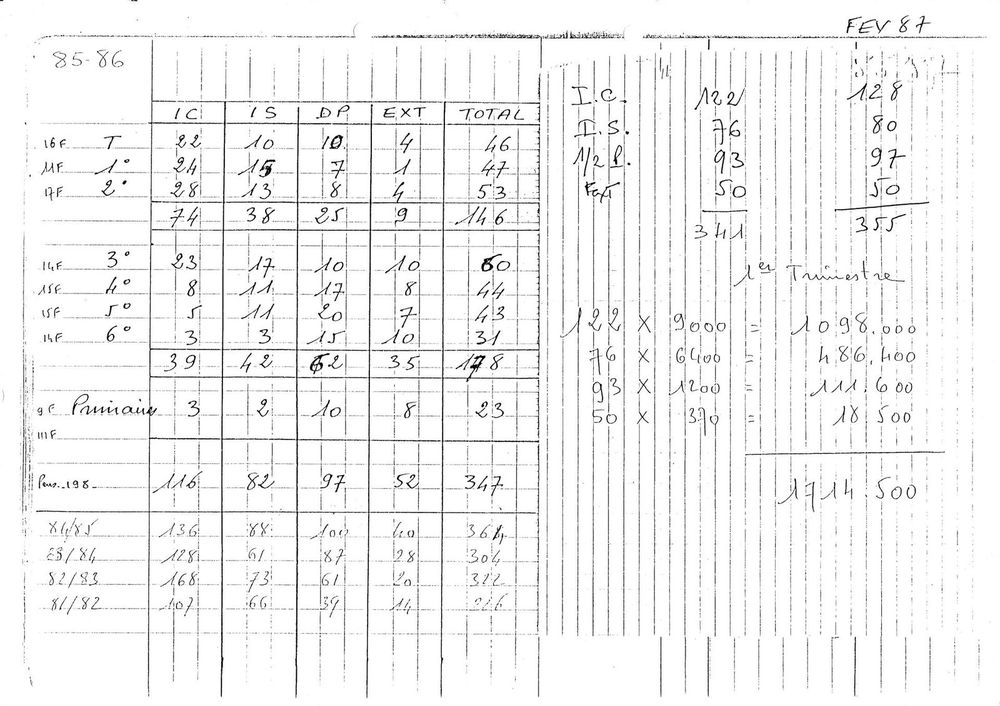 FEV 87
85-86
IC IS DP EXT TOTAL
16F T 22 10 10 4 46
11F 1° 24 15 7 1 47
17F 2° 28 13 8 4 53
74 38 25 9 146
14F 3° 23 17 10 10 60
15F 4° 8 11 17 8 44
15F 5° 5 11 20 7 43
14F 6° 3 3 15 10 31
39 42 62 35 178
9F Primaire 3 2 10 8 23
111F
Pens. 198 116 82 97 52 347
84/85 136 88 100 40 364
83/84 128 61 87 28 304
82/83 168 73 61 20 322
81/82 107 66 39 14 226
I.C. 122 128
I.S. 76 80
1/2 P. 93 97
Ext 50 50
341 355
1er Trimestre
122 X 9000 = 1098.000
76 X 6400 = 486.400
93 X 1200 = 111.600
50 X 370 = 18.500
1714.500